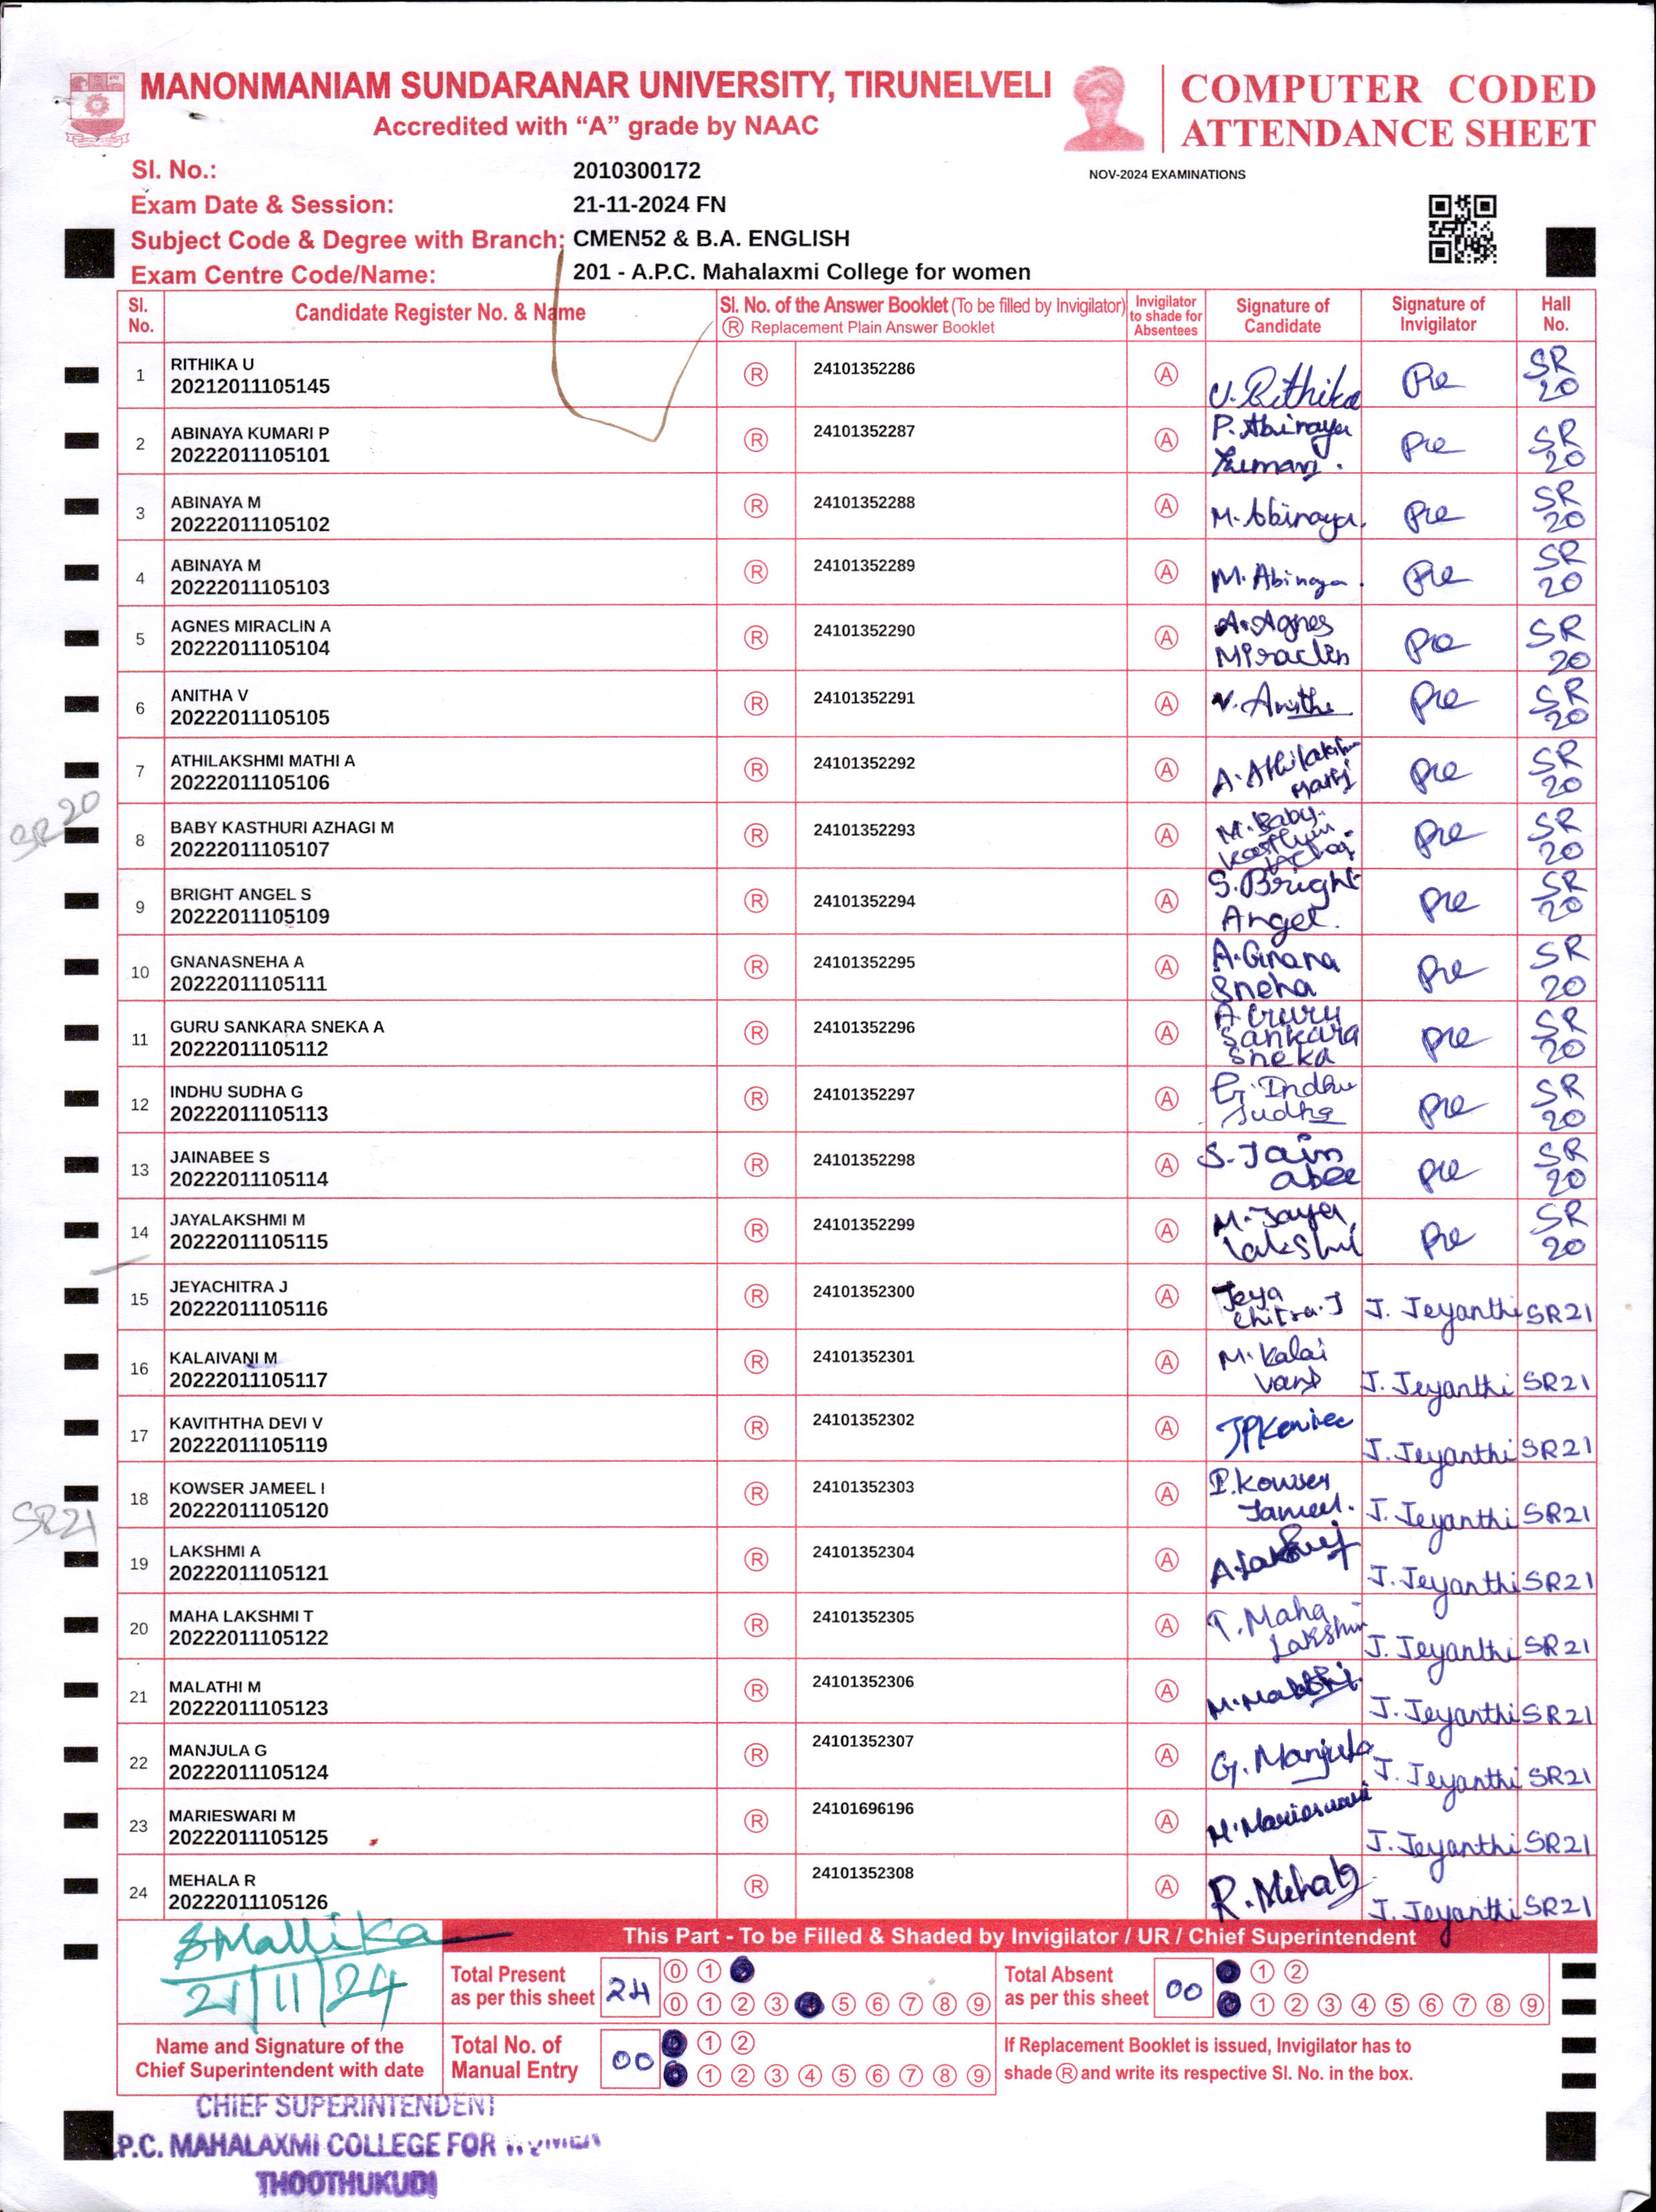 MANONMANIAM SUNDARANAR UNIVERSITY, TIRUNELVELI
Accredited with “A” grade by NAAC
COMPUTER CODED
ATTENDANCE SHEET
Sl. No.: 2010300172
NOV-2024 EXAMINATIONS
Exam Date & Session: 21-11-2024 FN
Subject Code & Degree with Branch: CMEN52 & B.A. ENGLISH
Exam Centre Code/Name: 201 - A.P.C. Mahalaxmi College for women
Sl. No. Candidate Register No. & Name Sl. No. of the Answer Booklet (To be filled by Invigilator) Ⓡ Replacement Plain Answer Booklet Invigilator to shade for Absentees Signature of Candidate Signature of Invigilator Hall No.
1 RITHIKA U 20212011105145 Ⓡ 24101352286 Ⓐ U. Rithika Pre SR 20
2 ABINAYA KUMARI P 20222011105101 Ⓡ 24101352287 Ⓐ P. Abinaya Kumari. Pre SR 20
3 ABINAYA M 20222011105102 Ⓡ 24101352288 Ⓐ M. Abinaya. Pre SR 20
4 ABINAYA M 20222011105103 Ⓡ 24101352289 Ⓐ M. Abinaya. Pre SR 20
5 AGNES MIRACLIN A 20222011105104 Ⓡ 24101352290 Ⓐ A. Agnes Miraclin Pre SR 20
6 ANITHA V 20222011105105 Ⓡ 24101352291 Ⓐ V. Anitha Pre SR 20
7 ATHILAKSHMI MATHI A 20222011105106 Ⓡ 24101352292 Ⓐ A. Athilakshmi Mathi Pre SR 20
SR 20
8 BABY KASTHURI AZHAGI M 20222011105107 Ⓡ 24101352293 Ⓐ M. Baby Kasthuri Pre SR 20
9 BRIGHT ANGEL S 20222011105109 Ⓡ 24101352294 Ⓐ S. Bright Angel. Pre SR 20
10 GNANASNEHA A 20222011105111 Ⓡ 24101352295 Ⓐ A. Gnana Sneha Pre SR 20
11 GURU SANKARA SNEKA A 20222011105112 Ⓡ 24101352296 Ⓐ A Guru Sankara Sneka Pre SR 20
12 INDHU SUDHA G 20222011105113 Ⓡ 24101352297 Ⓐ G. Indhu Sudha Pre SR 20
13 JAINABEE S 20222011105114 Ⓡ 24101352298 Ⓐ S. Jain abee Pre SR 20
14 JAYALAKSHMI M 20222011105115 Ⓡ 24101352299 Ⓐ M. Jaya Lakshmi Pre SR 20
15 JEYACHITRA J 20222011105116 Ⓡ 24101352300 Ⓐ Jeya chitra. J J. Jeyanthi SR21
16 KALAIVANI M 20222011105117 Ⓡ 24101352301 Ⓐ M. Kalai vani J. Jeyanthi SR21
17 KAVITHTHA DEVI V 20222011105119 Ⓡ 24101352302 Ⓐ J. Jeyanthi SR21
18 KOWSER JAMEEL I 20222011105120 Ⓡ 24101352303 Ⓐ I. Kowser Jameel. J. Jeyanthi SR21
SR21
19 LAKSHMI A 20222011105121 Ⓡ 24101352304 Ⓐ J. Jeyanthi SR21
20 MAHA LAKSHMI T 20222011105122 Ⓡ 24101352305 Ⓐ T. Maha Lakshmi J. Jeyanthi SR21
21 MALATHI M 20222011105123 Ⓡ 24101352306 Ⓐ M. Malathi J. Jeyanthi SR21
22 MANJULA G 20222011105124 Ⓡ 24101352307 Ⓐ G. Manjula J. Jeyanthi SR21
23 MARIESWARI M 20222011105125 Ⓡ 24101696196 Ⓐ M. Marieswari J. Jeyanthi SR21
24 MEHALA R 20222011105126 Ⓡ 24101352308 Ⓐ R. Mehala J. Jeyanthi SR21
SMallika
21/11/24
This Part - To be Filled & Shaded by Invigilator / UR / Chief Superintendent
Total Present as per this sheet 24 0 1 0 1 2 3 5 6 7 8 9
Total Absent as per this sheet 00 1 2 1 2 3 4 5 6 7 8 9
Name and Signature of the Chief Superintendent with date
Total No. of Manual Entry 00 1 2 1 2 3 4 5 6 7 8 9
If Replacement Booklet is issued, Invigilator has to
shade Ⓡ and write its respective Sl. No. in the box.
CHIEF SUPERINTENDENT
.P.C. MAHALAXMI COLLEGE FOR WOMEN
THOOTHUKUDI